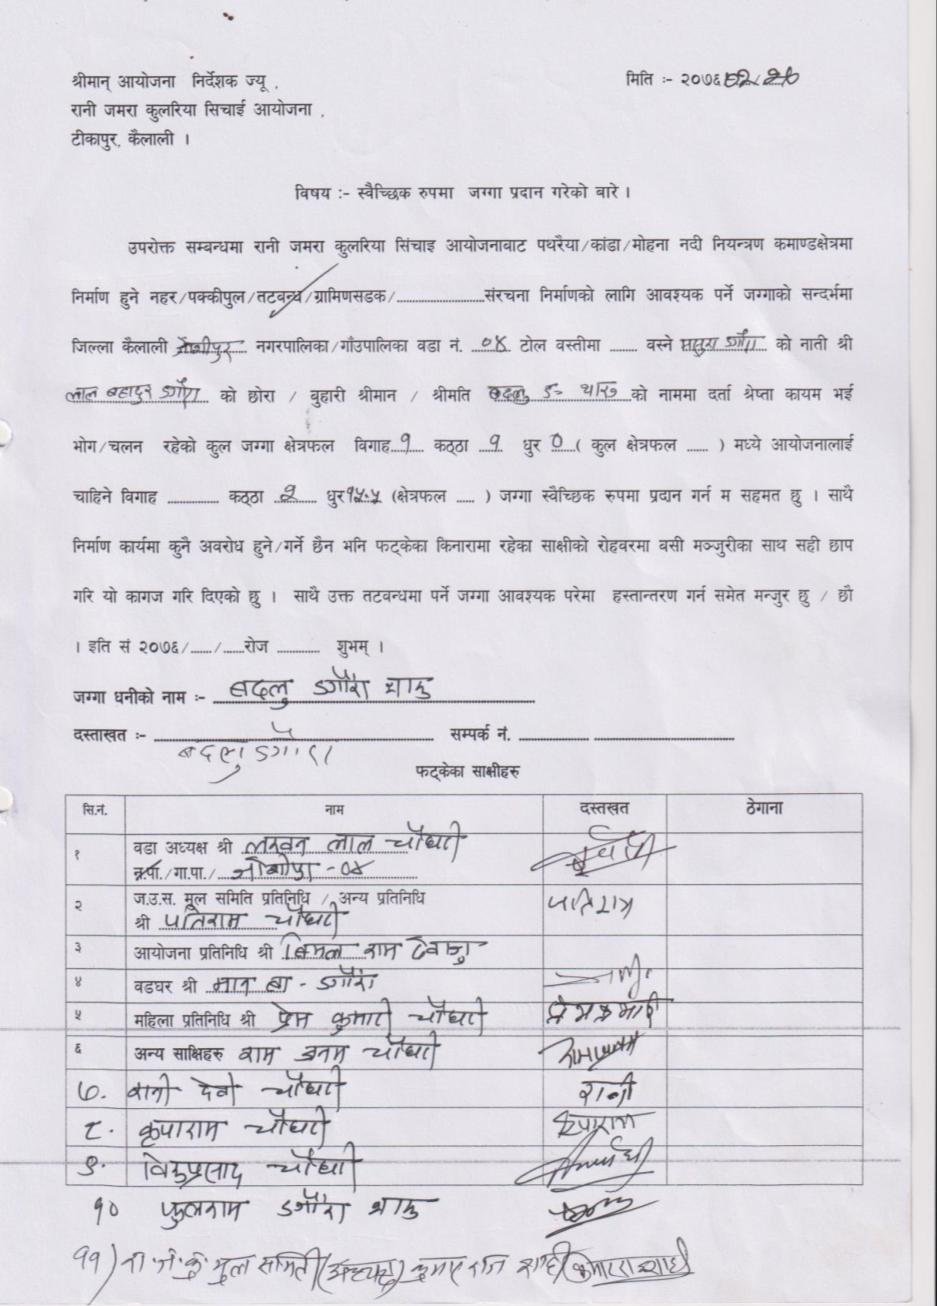 श्रीमान् आयोजना निर्देशक ज्यू .
मिति :- २०७६
रानी जमरा कुलरिया सिचाई आयोजना .
टीकापुर, कैलाली ।
विषय :- स्वैच्छिक रुपमा जग्गा प्रदान गरेको बारे ।
उपरोक्त सम्बन्धमा रानी जमरा कुलरिया सिंचाइ आयोजनाबाट पथरैया/कांडा/मोहना नदी नियन्त्रण कमाण्डक्षेत्रमा
निर्माण हुने नहर/पक्कीपुल/तटवन्ध/ग्रामिणसडक/........................संरचना निर्माणको लागि आवश्यक पर्ने जग्गाको सन्दर्भमा
जिल्ला कैलाली नगरपालिका/गाँउपालिका वडा नं. ०४ टोल वस्तीमा ....... वस्ने को नाती श्री
लाल बहादुर डगौरा को छोरा / बुहारी श्रीमान / श्रीमति बदलु ड० थारु को नाममा दर्ता श्रेष्ता कायम भई
भोग/चलन रहेको कुल जग्गा क्षेत्रफल विगाह १ कठ्ठा १ धुर ० ( कुल क्षेत्रफल ...... ) मध्ये आयोजनालाई
चाहिने विगाह .............. कठ्ठा २ धुर १५.५ (क्षेत्रफल ..... ) जग्गा स्वैच्छिक रुपमा प्रदान गर्न म सहमत छु । साथै
निर्माण कार्यमा कुनै अवरोध हुने/गर्ने छैन भनि फट्केका किनारामा रहेका साक्षीको रोहवरमा वसी मञ्जुरीका साथ सही छाप
गरि यो कागज गरि दिएको छु । साथै उक्त तटवन्धमा पर्ने जग्गा आवश्यक परेमा हस्तान्तरण गर्न समेत मन्जुर छु / छौ
। इति सं २०७६/....../......रोज ............ शुभम् ।
जग्गा धनीको नाम :- बदलु डगौरा थारु
दस्ताखत :- सम्पर्क नं. .................... ........................................
बदलु डगौरा
फट्केका साक्षीहरु
सि.नं. नाम दस्तखत ठेगाना
१ वडा अध्यक्ष श्री लखन लाल चौधरी
न.पा./गा.पा./ - ०४
२ ज.उ.स. मुल समिति प्रतिनिधि / अन्य प्रतिनिधि
श्री पतिराम चौधरी पतिराम
३ आयोजना प्रतिनिधि श्री बिमल राम
४ वडघर श्री मान ब० डगौरा
५ महिला प्रतिनिधि श्री प्रेम कुमारी चौधरी प्रेमकुमारी
६ अन्य साक्षिहरु राम चौधरी
७. रानी देवी चौधरी रानी
८. कृपाराम चौधरी कृपाराम
९. चौधरी
१० फुलराम डगौरा थारु
११) रा.ज.कु. मुल समिति (अध्यक्ष) कुमार राज शाही